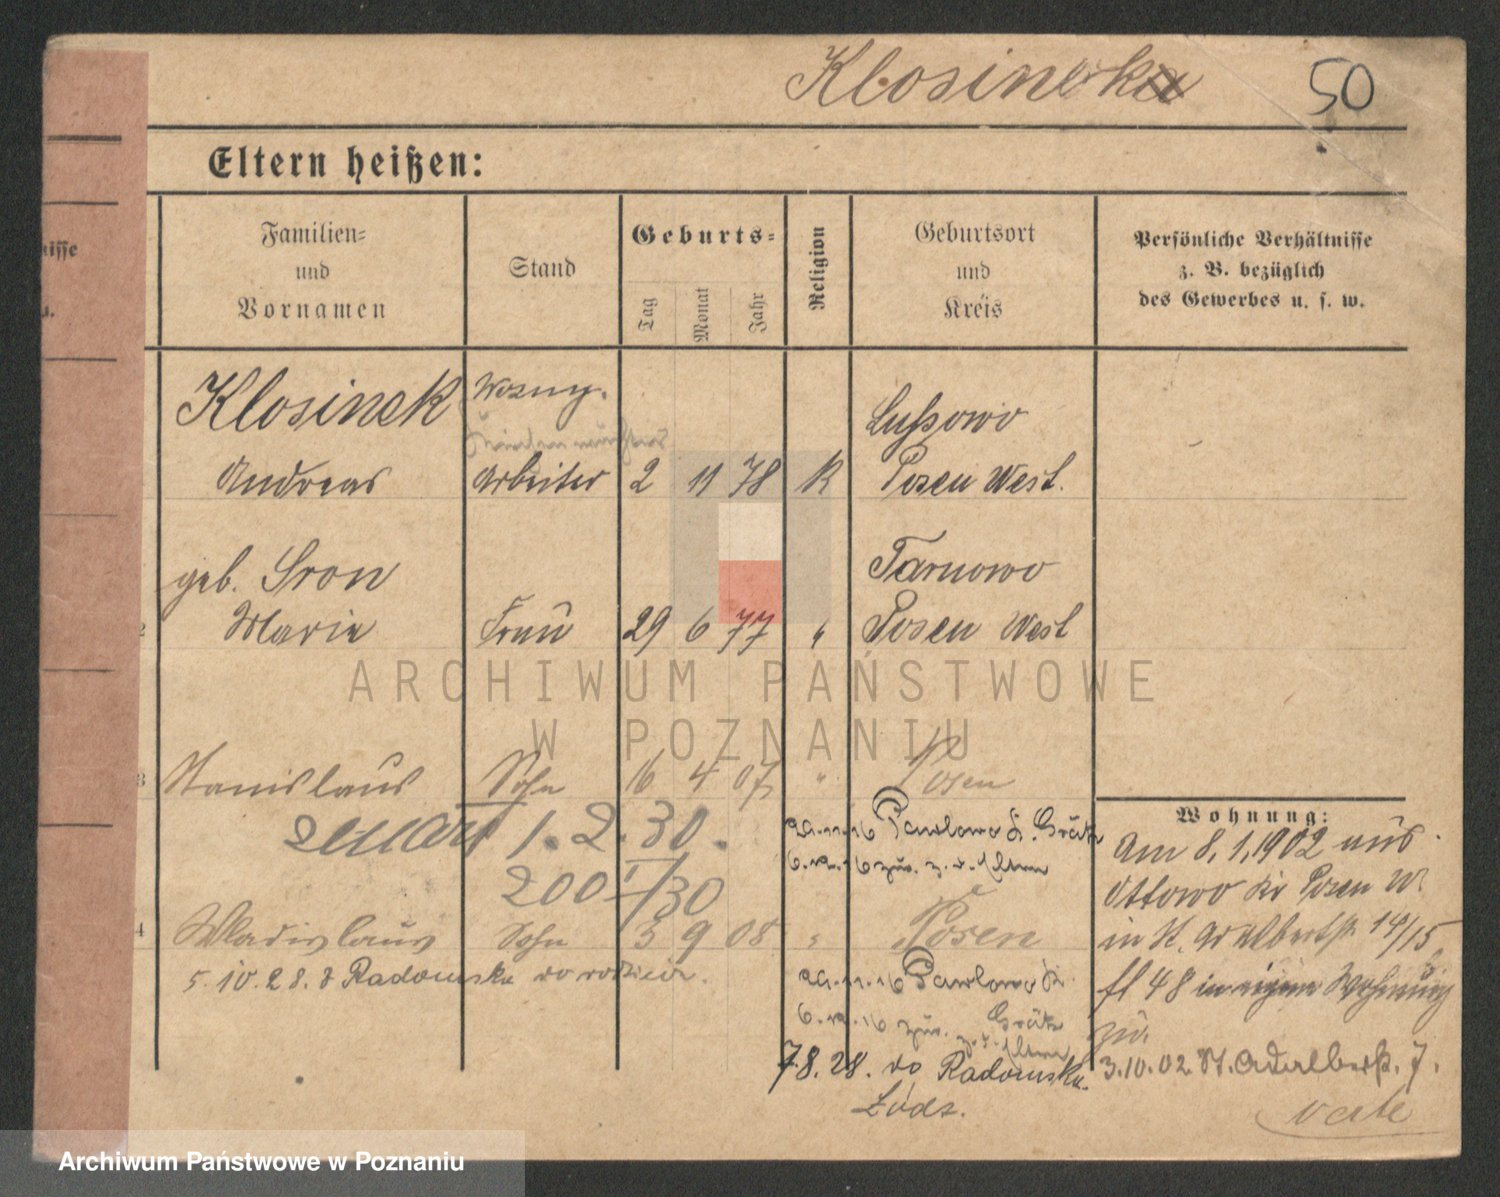 Klosinek
50
Eltern heißen:
Familien=
und
Vornamen
Stand
Geburts=
Tag
Monat
Jahr
Religion
Geburtsort
und
Kreis
Persönliche Verhältnisse
z. B. bezüglich
des Gewerbes u. s. w.
nisse
u.
Klosinek
Wozny.
Lussowo
Andreas
Arbeiter
2
11
78
K
Posen West.
geb. Sron
Tarnowo
2
Marie
Frau
29
6
77
"
Posen West
ARCHIWUM PAŃSTWOWE
W POZNANIU
3
Stanislaus
Sohn
16
4
07
"
Posen
Wohnung:
zmarł 1.2.30.
29.11.16 Pawlowo K. Grätz
6.12.16 zur. z. d. Eltern
Am 8.1.1902 aus
200 I/30
Ottowo Kr Posen W.
4
Wladislaus
Sohn
3
9
08
"
Posen
in St. Adalbertstr. 14/15
5.10.28. z Radomska do rodziców.
29.11.16 Pawlowo K.
Grätz
6.12.16 zur. z. d. Eltern
fl 48 in eigene Wohnung
zu.
7.8.28. do Radomska
Łódz.
3.10.02 St. Adalbertstr. 7.
verte
Archiwum Państwowe w Poznaniu